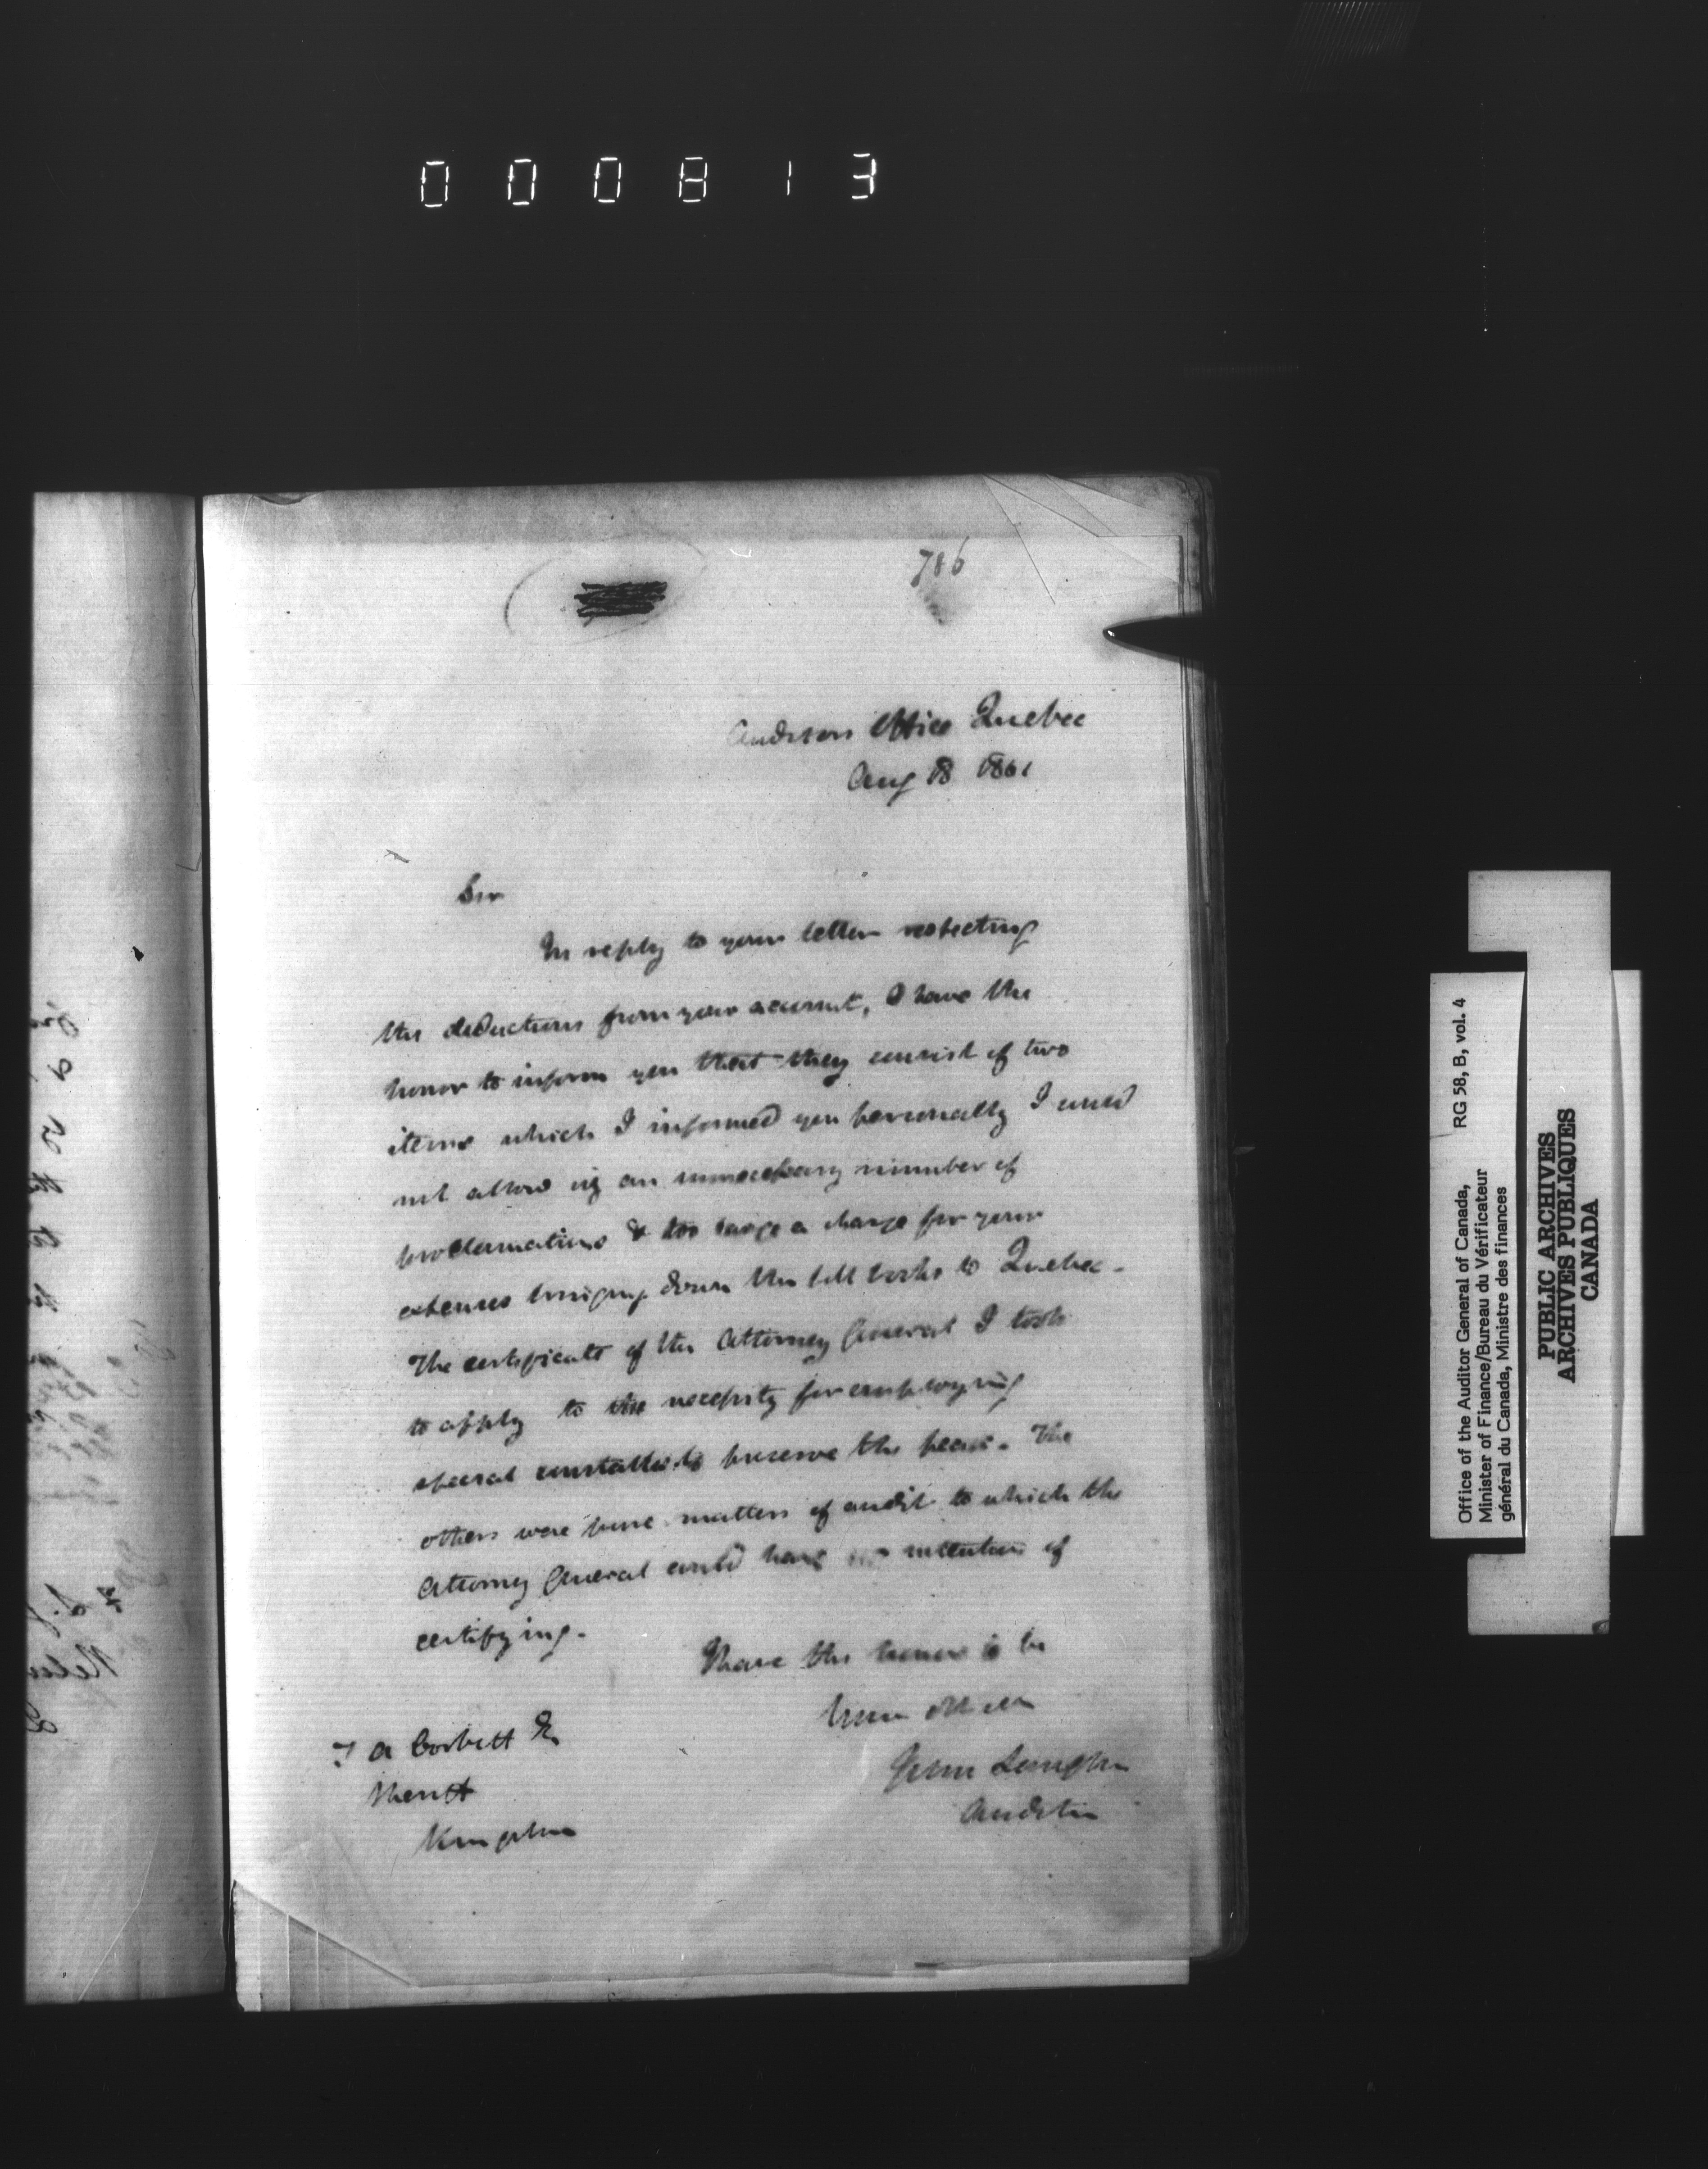 000813
786
Auditors Office Quebec
Aug 18 1861
Sir
In reply to your letter respecting
the deductions from your account, I have the
honor to inform you that they consist of two
items which I informed you personally I could
not allow viz an unnecessary number of
proclamations & too large a charge for your
expenses bringing down the poll books to Quebec.
The certificate of the Attorney General I took
to apply to the necessity for employing
special constables to preserve the peace. The
others were pure matters of audit to which the
Attorney General could have no intention of
certifying.
I have the honor to be
Your Ob
John Langton
Auditor
A Corbett
Sheriff
Kingston
Office of the Auditor General of Canada,
Minister of Finance/Bureau du Vérificateur
général du Canada, Ministre des finances
RG 58, B, vol. 4
PUBLIC ARCHIVES
ARCHIVES PUBLIQUES
CANADA